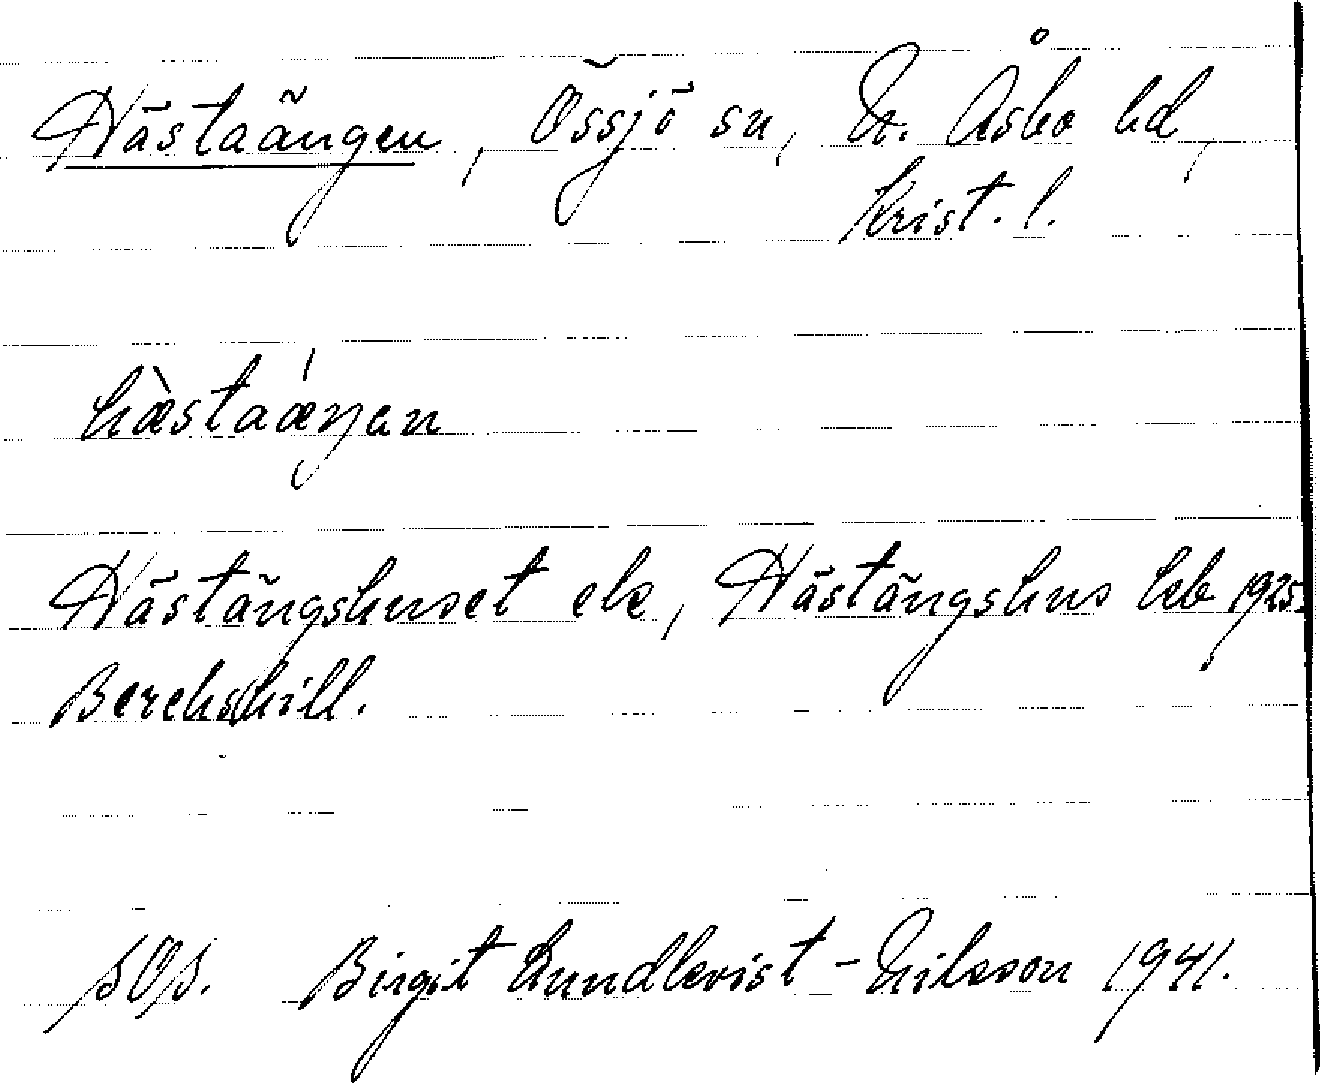 Hästaängen, Össjö sn, N. Åsbo hd,
Krist. l.
hæ̀staǽŋan
Hästängshuset ek, Hästängshus hcb 1925.
Berchshill.
SOS. Birgit Lundkvist-Nilsson 1941.